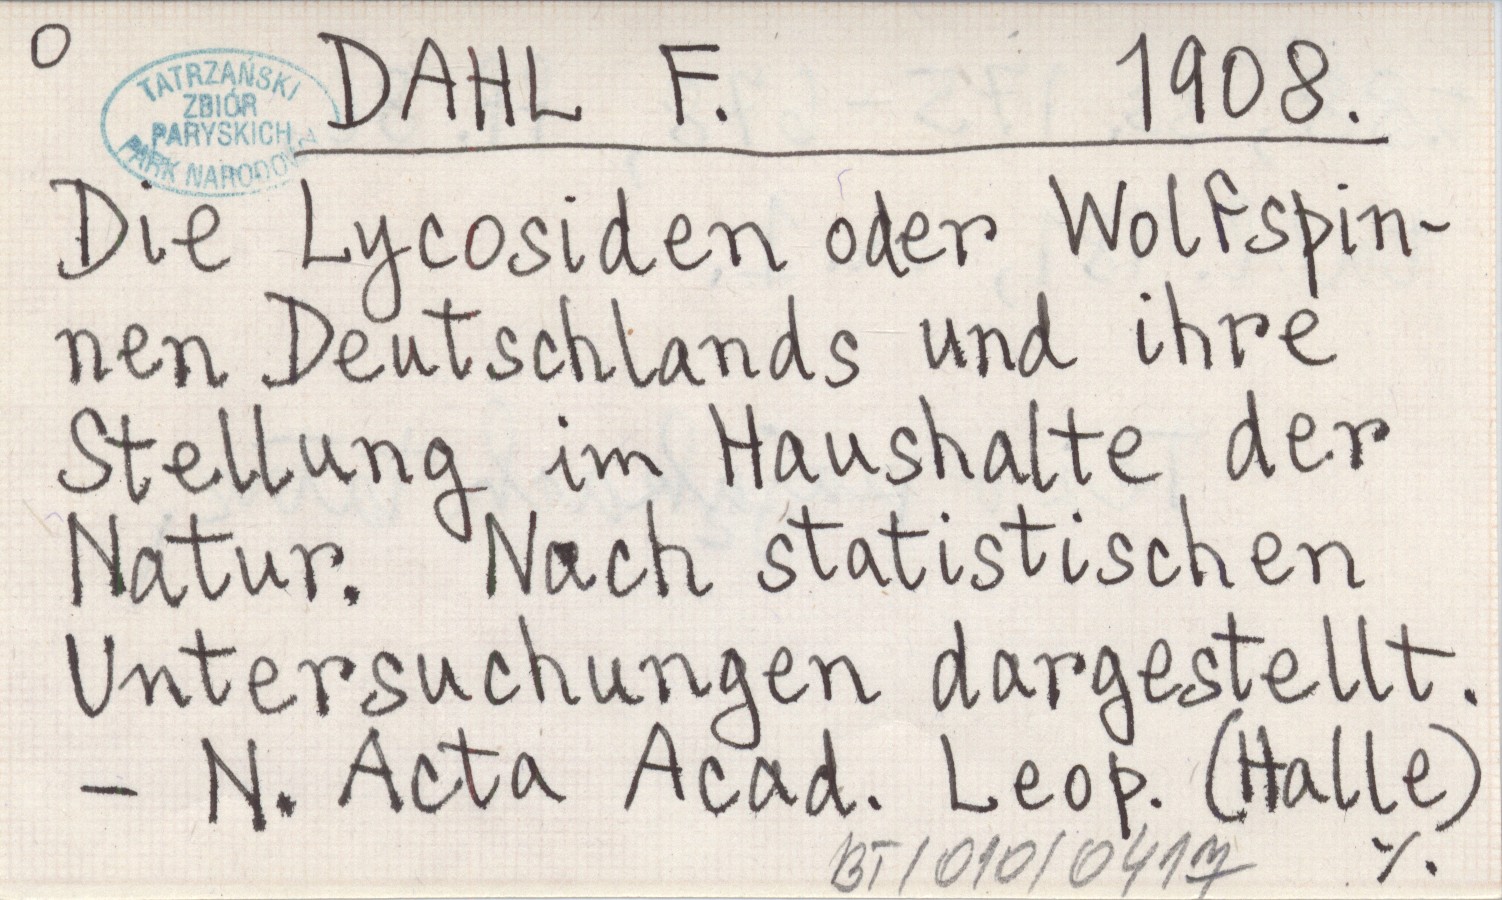 O
TATRZAŃSKI
ZBIÓR
PARYSKICH
PARK NARODOWY
DAHL F. 1908.
Die Lycosiden oder Wolfspin-
nen Deutschlands und ihre
Stellung im Haushalte der
Natur. Nach statistischen
Untersuchungen dargestellt.
- N. Acta Acad. Leop. (Halle)
BT/010/0417 ·/.